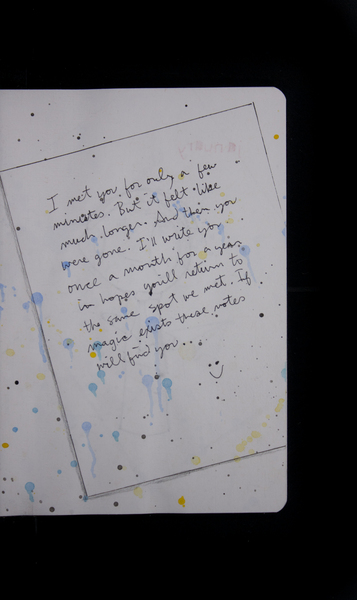 I met you for only a few
minutes. But it felt like
much longer. And then you
were gone. I'll write you
once a month for a year
in hopes you'll return to
the same spot we met. If
magic exists these notes
will find you...